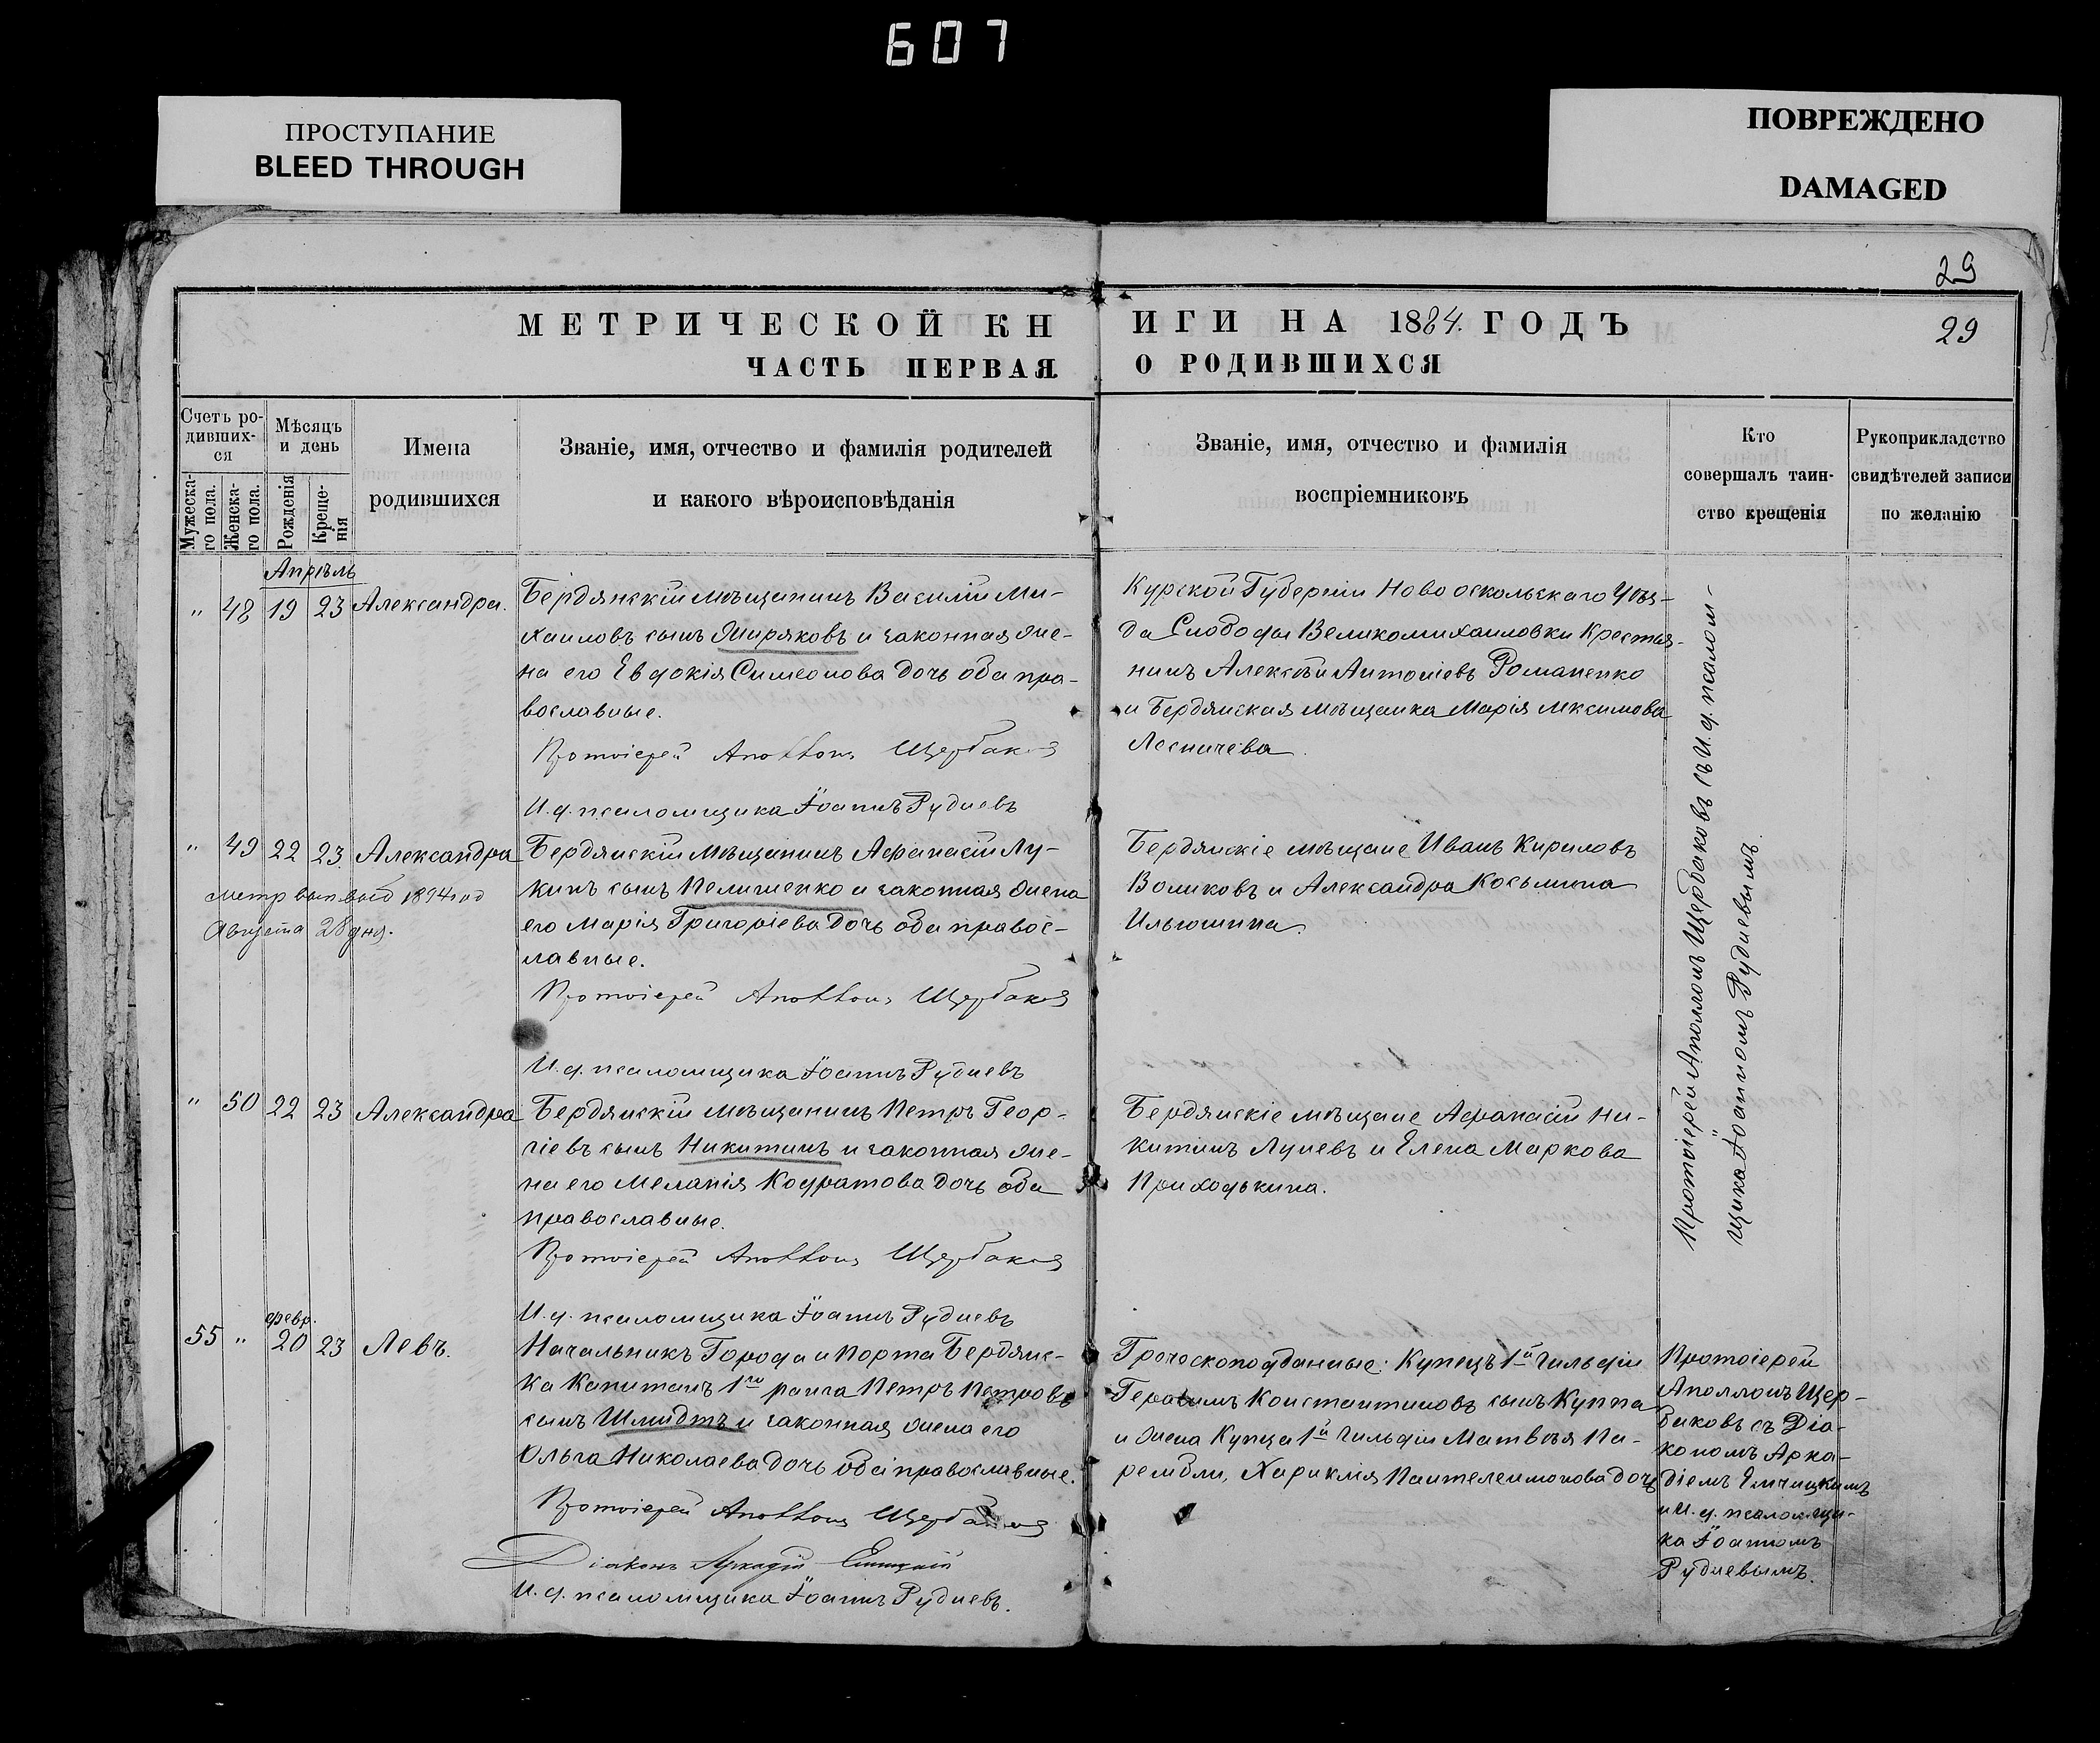 607
ПРОСТУПАНИЕ
BLEED THROUGH
ПОВРЕЖДЕНО
DAMAGED
29
МЕТРИЧЕСКОЙ КНИГИ НА 1884. ГОДЪ
29
ЧАСТЬ ПЕРВАЯ О РОДИВШИХСЯ
Счетъ ро-
дивших-
ся
Мужеска-
го пола.
Женска-
го пола.
Мѣсяцъ
и день
Рожденія
Креще-
нія
Имена
родившихся
Званіе, имя, отчество и фамилія родителей
и какого вѣроисповѣданія
Званіе, имя, отчество и фамилія
воспріемниковъ
Кто
совершалъ таин-
ство крещенія
Рукоприкладство
свидѣтелей записи
по желанію
Апрѣль
" 48 19 23 Александра.
Бердянскій мѣщанинъ Василій Ми-
хаиловъ сынъ Жиряковъ и законная же-
на его Евдокія Симеонова дочь оба пра-
вославные.
Протоіерей Аполлонъ Щербаковъ
И.д. псаломщика Іоаннъ Рудневъ
Курской Губерніи Новооскольскаго Уѣз-
да Слободы Великомихаиловки Крестья-
нинъ Алексѣй Антоніевъ Романенко
и Бердянская мѣщанка Марія Мксимова
Лесничева
Протоіерей Аполлонъ Щербаковъ съ И.д. псалом-
щика Іоанномъ Рудневымъ.
" 49 22 23 Александра
метр вып выд 1894 год
Августа 28 дня.
Бердянскій Мѣщанинъ Афанасій Лу-
кинъ сынъ Пелишенко и законная жена
его Марія Григоріева дочь оба правос-
лавные.
Протоіерей Аполлонъ Щербаковъ
И.д. псаломщика Іоаннъ Рудневъ
Бердянскіе мѣщане Иванъ Кириловъ
Воликовъ и Александра Косьмина
Ильюшина.
" 50 22 23 Александра
Бердянскій мѣщанинъ Петръ Геор-
гіевъ сынъ Никитинъ и законная же-
на его Меланія Кодратова дочь оба
православные.
Протоіерей Аполлонъ Щербаковъ
И.д. псаломщика Іоаннъ Рудневъ
Бердянскіе мѣщане Афанасій Ни-
китинъ Луневъ и Елена Маркова
Приходькина.
февр.
55 " 20 23 Левъ.
Начальникъ Города и Порта Бердянс-
ка Капитанъ 1го ранга Петръ Петровъ
сынъ Шмидтъ и законная жена его
Ольга Николаева дочь оба православные.
Протоіерей Аполлонъ Щербаковъ
Діаконъ Аркадій
И.д. псаломщика Іоаннъ Рудневъ.
Грекоскоподданные: Купецъ 1й гильдіи
Герасимъ Константиновъ сынъ Куппа
и жена Купца 1й Гильдіи Матвѣя Па-
рембли, Хариклія Пантелеимонова дочь
Протоіерей
Аполлонъ Щер-
баковъ съ Діа-
кономъ Арка-
діемъ
и И.д. псаломщи-
ка Іоанномъ
Рудневымъ.